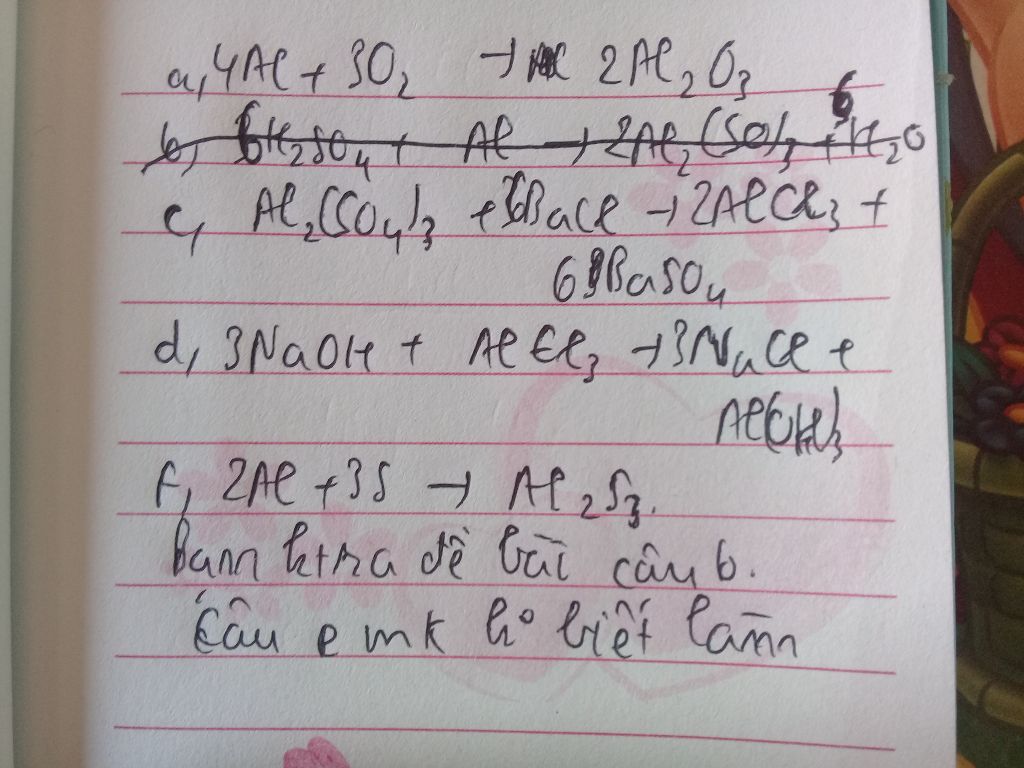 a, 4Al + 3O2 → 2Al2O3
b, 6H2SO4 + Al → 2Al2(SO)3 + 6H2O
c, Al2(SO4)3 + BaCl → 2AlCl3 +
6 BaSO4
d, 3NaOH + AlCl3 → 3NaCl +
Al(OH)3
f, 2Al + 3S → Al2S3.
Bạn ktra đề bài câu b.
Câu e mk ko biết làm